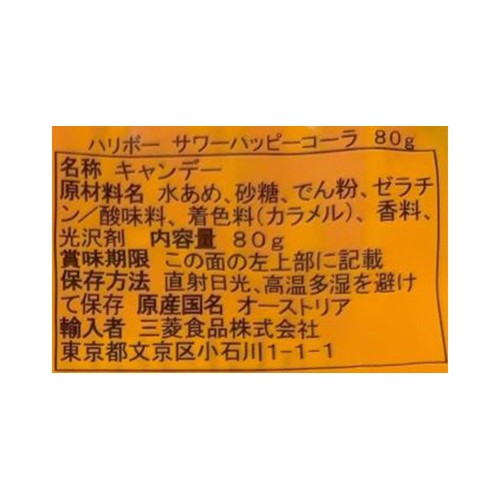 ハリボー サワーハッピーコーラ 80g
名称 キャンデー
原材料名 水あめ、砂糖、でん粉、ゼラチ
ン/酸味料、着色料(カラメル)、香料、
光沢剤 内容量 80g
賞味期限 この面の左上部に記載
保存方法 直射日光、高温多湿を避け
て保存 原産国名 オーストリア
輸入者 三菱食品株式会社
東京都文京区小石川1-1-1